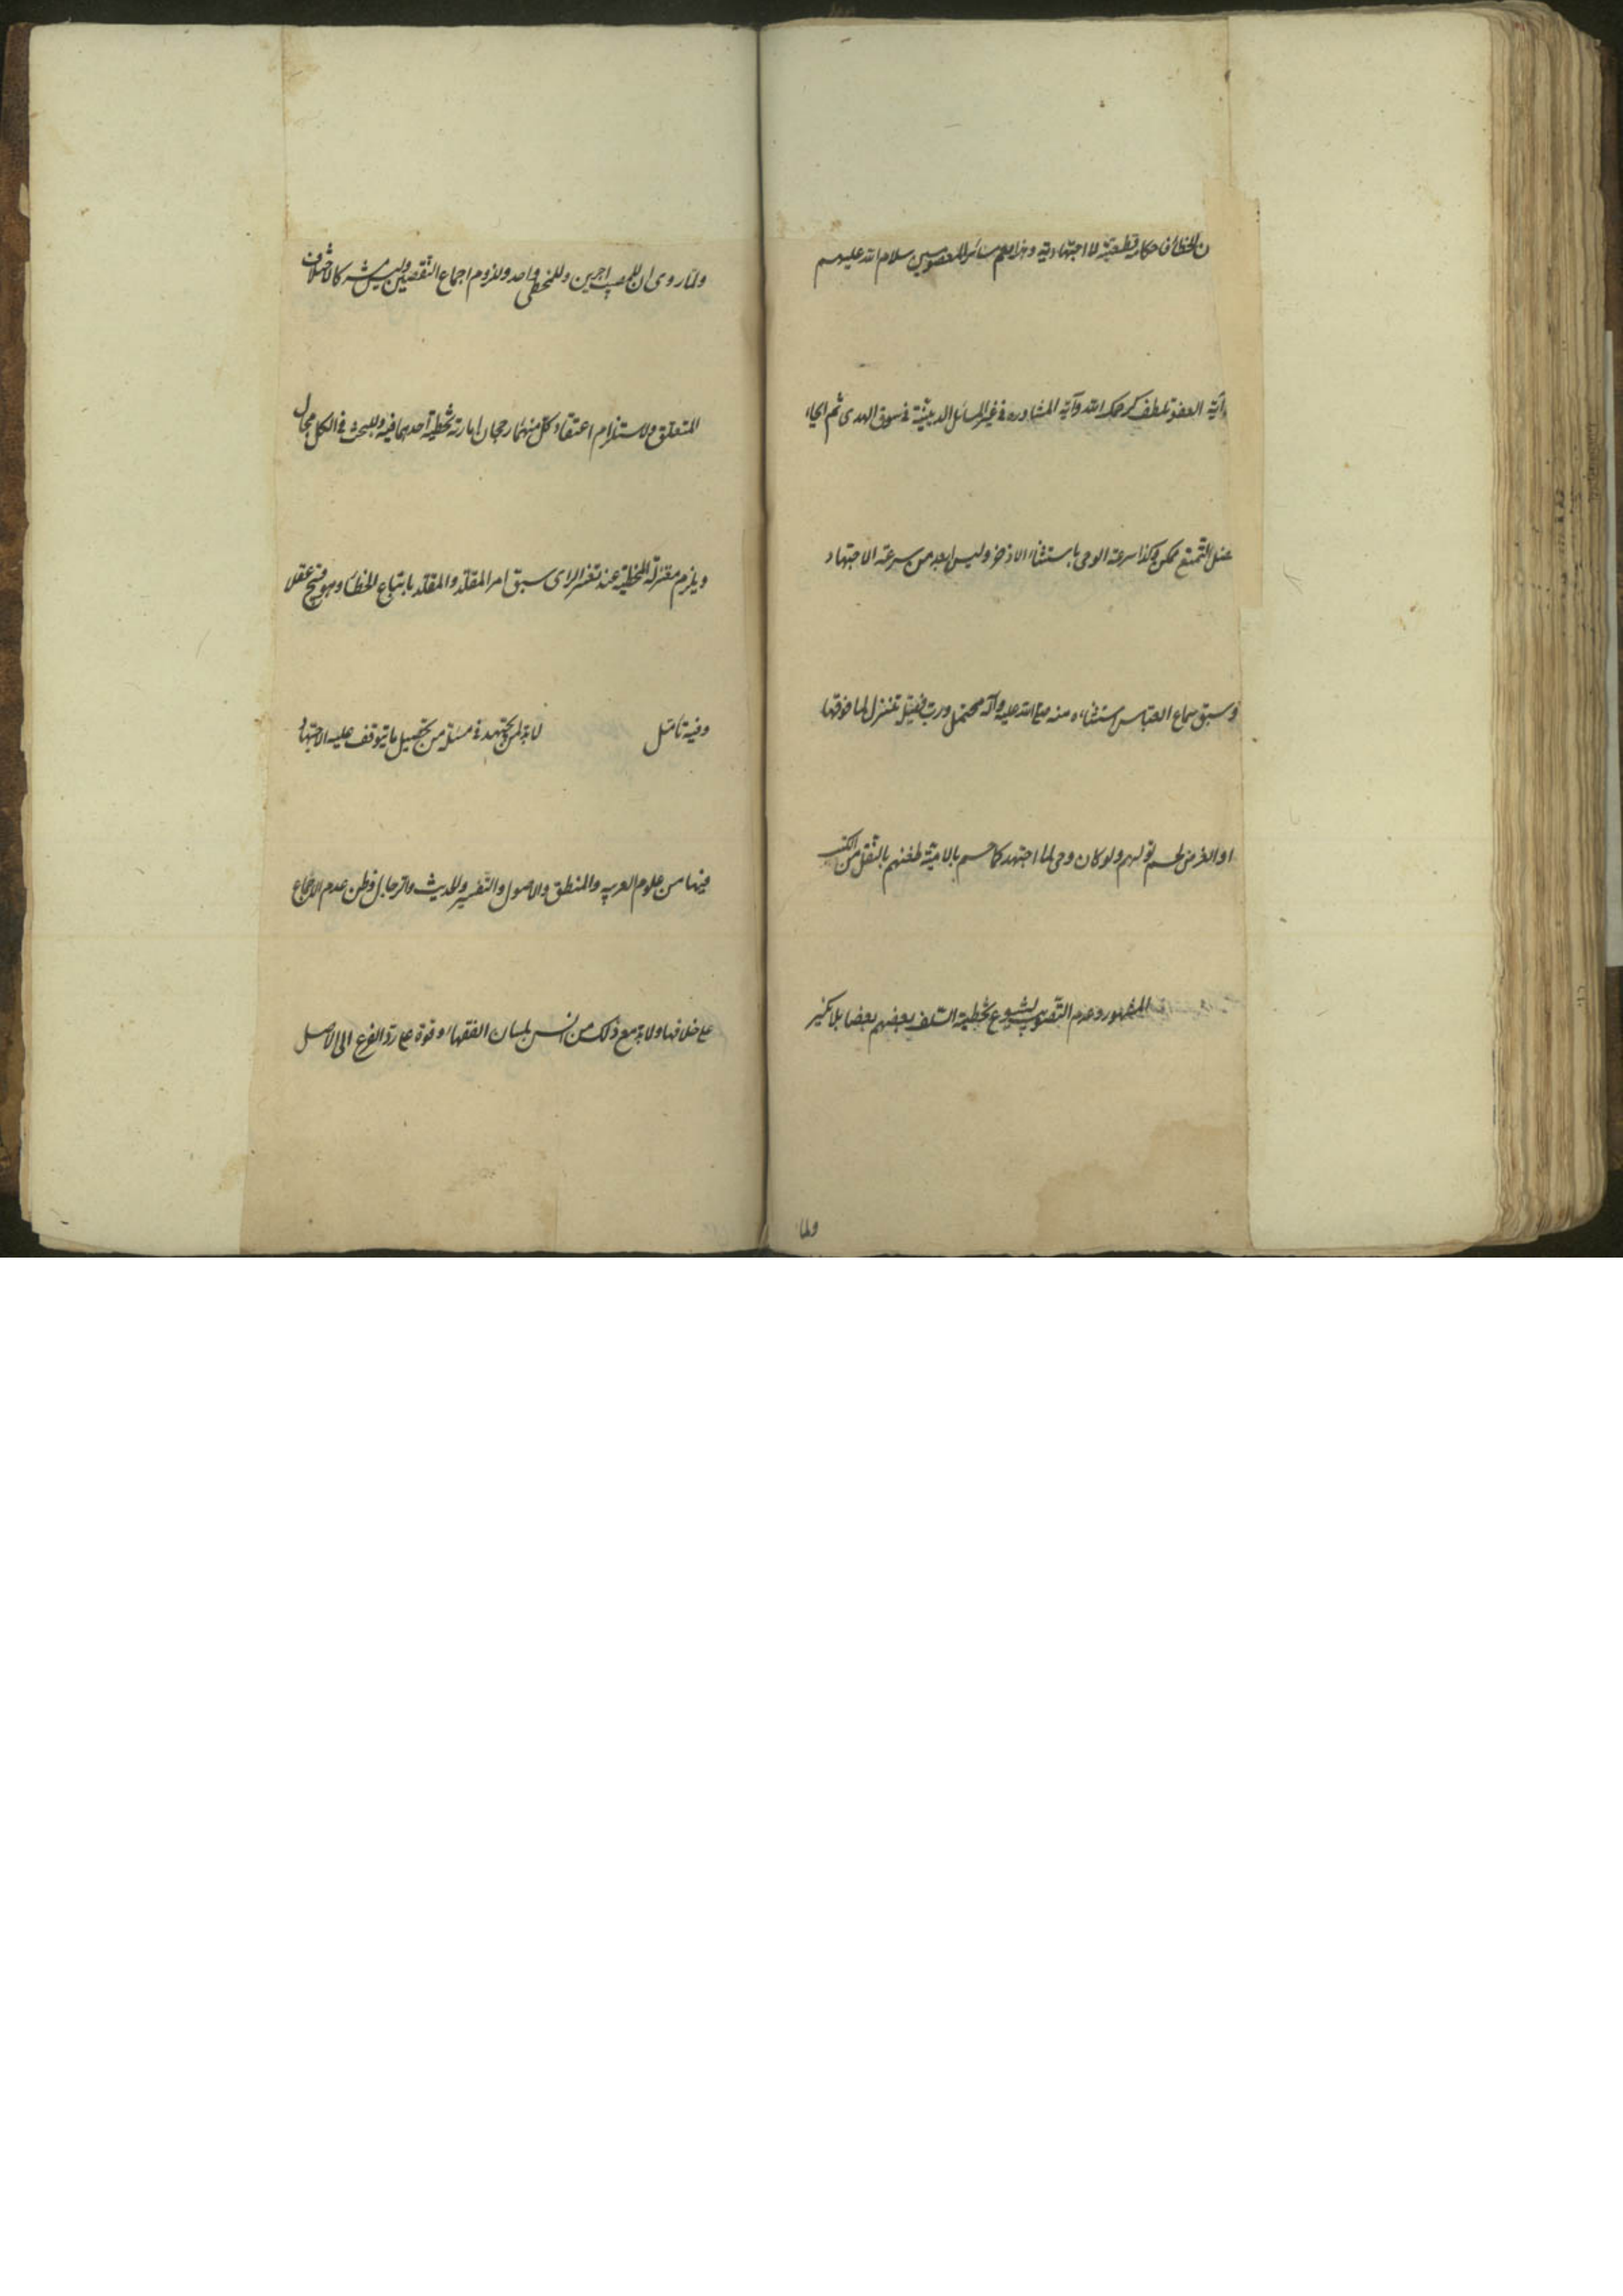 ن الخطأ فاحكامه قطعية لا اجتهادية وهذا حكم سائر المعصومين سلام الله عليهم
وآية العفو تلطف كرحمك الله وآية المشاورة في غير المسائل الدينية في سوق الهدى ثم ايجاب
عدل التمتع ممكن وكذا سرعة الوحى باستثناء الاذخر وليس ابعد من سرعة الاجتهاد
وسبق سماع العباس استثناءه منه صلى الله عليه وآله محتمل ورب فضيلة تنزل لما فوقها
او الغرض لحسم قولهم ولو كان وحى لما اجتهد كما حسم بالامية طعنهم بالنقل من الكتب
المشهور وعدم التصويب لشيوع تخطئة السلف بعضهم بعضا بلا نكير
ولما
ولما روى ان للمصيب اجرين وللمخطى واحد ولزوم اجماع النقيضين وليس مشترك الاختلاف
المتعلق ولاستلزام اعتقاد كل منهما رجحان امارته تخطئة احدهما فيه وللبحث في الكل مجال
ويلزم معتزلة المخطئة عند تغير الراى سبق امر المقلد والمقلد باتباع الخطأ وهو قبيح عقلا
وفيه تأمل لا بد لمن يجتهد في مسئلة من تحصيل ما يتوقف عليه الاجتهاد
فيها من علوم العربيه والمنطق والاصول والتفسير والحديث والرجال وظن عدم الاجماع
على خلافها ولا بد مع ذلك من انس بلسان الفقهاء وقوة على رد الفرع الى الاصل